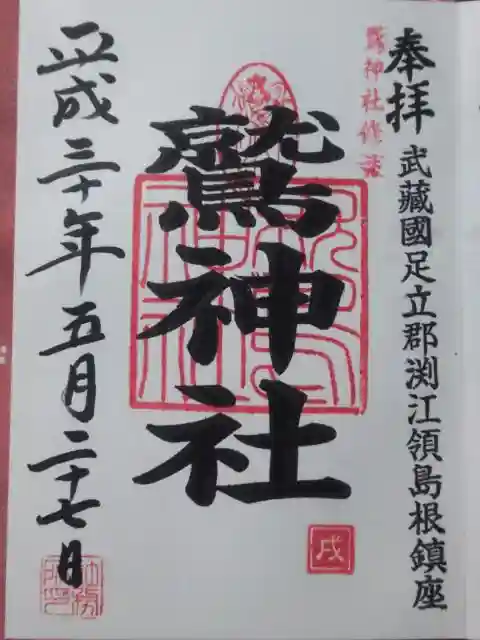 奉拝
武藏國足立郡渕江領島根鎮座
鷲神社
平成三十年五月二十七日
戌